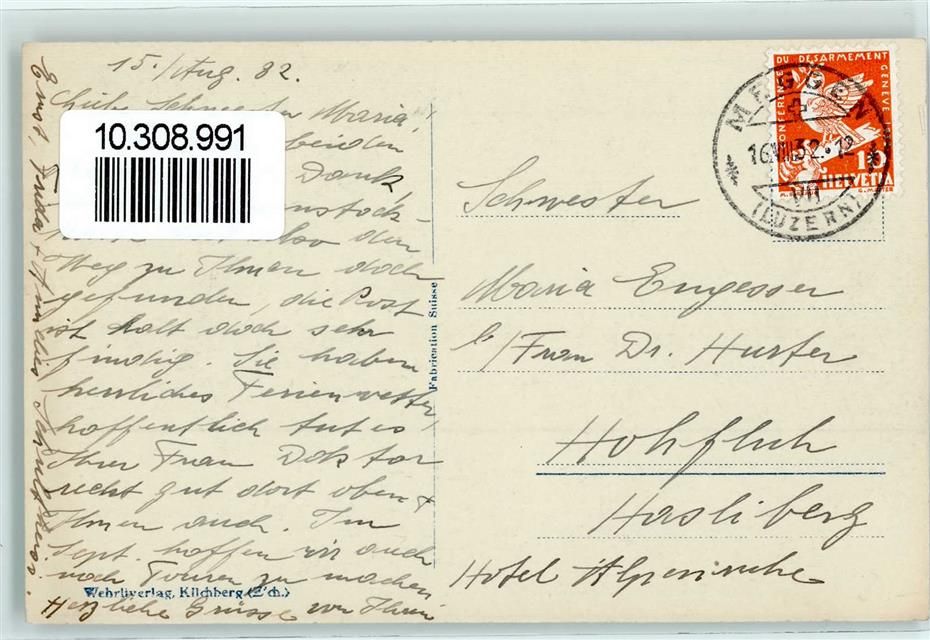 15./Aug. 32.
Liebe Schwester Maria,
beiden
Dank
nstock-
den
Weg zu Ihnen doch
gefunden, die Post
ist halt doch sehr
findig. Sie haben
herrliches Ferienwetter,
hoffentlich tut es
Ihrer Frau Doktor
recht gut dort oben &
Ihnen auch. Im
Sept. hoffen wir auch
noch Touren zu machen
Herzliche Grüsse von Ihnen
Ernst, Frida + Annelies
10.308.991
Wehrliverlag, Kilchberg (Z'ch.)
Fabrication Suisse
CONFERENCE DU DESARMEMENT GENEVE
10
HELVETIA
MEGGEN
16.VIII.32.-12
VII
(LUZERN)
Schwester
Maria Engesser
b/Frau Dr. Hurter
Hohfluh
Hasliberg
Hotel Alpenruhe